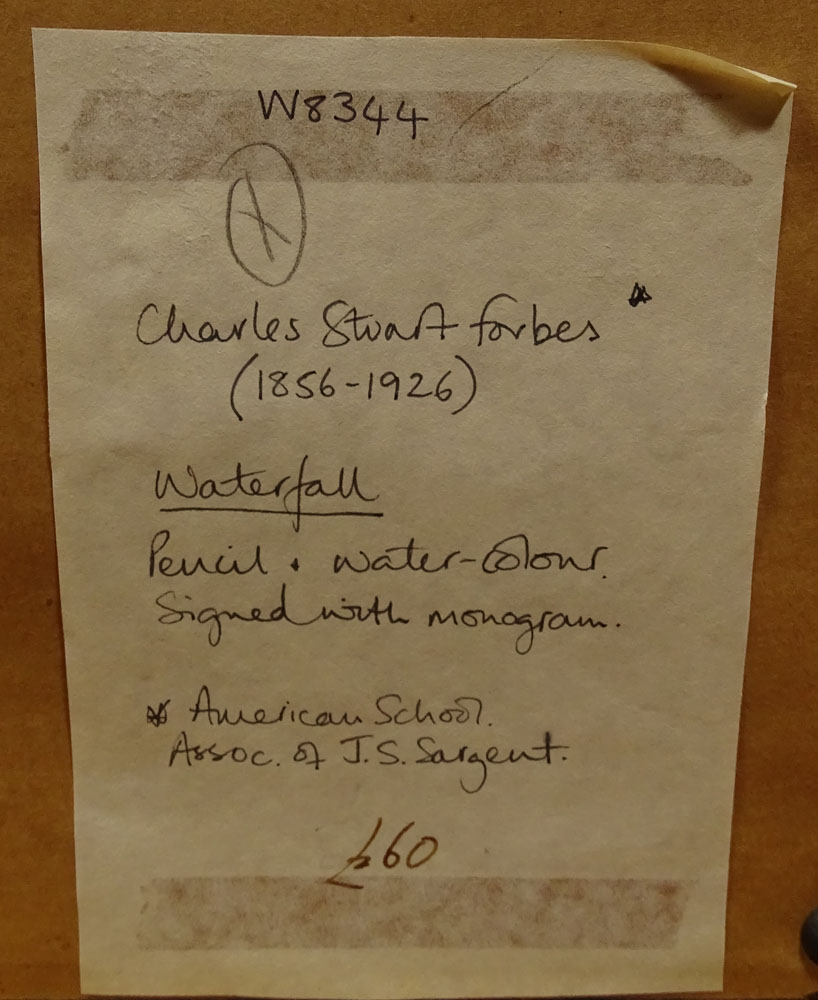 W8344
X
Charles Stuart Forbes *
(1856-1926)
Waterfall
Pencil + water-colour.
Signed with monogram.
* American School.
Assoc. of J.S. Sargent.
£60